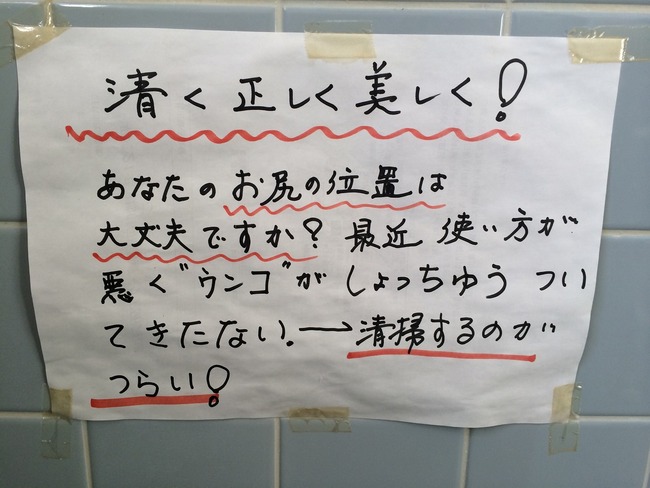 清く正しく美しく!
あなたのお尻の位置は
大丈夫ですか?最近使い方が
悪く"ウンコ"がしょっちゅうつい
てきたない。→清掃するのが
つらい!